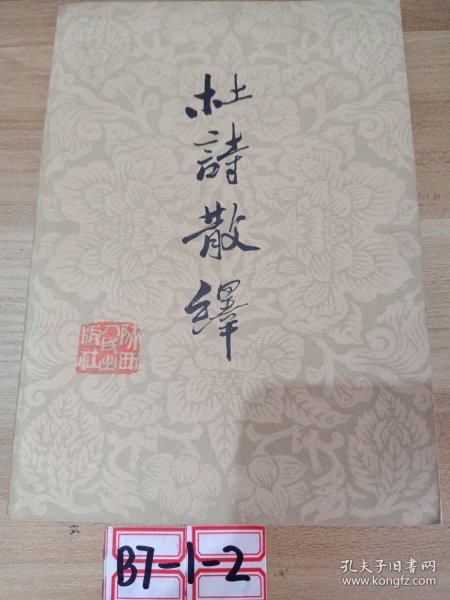 杜詩散繹
陕西
人民出
版社
B7-1-2
孔夫子旧书网
www.kongfz.com